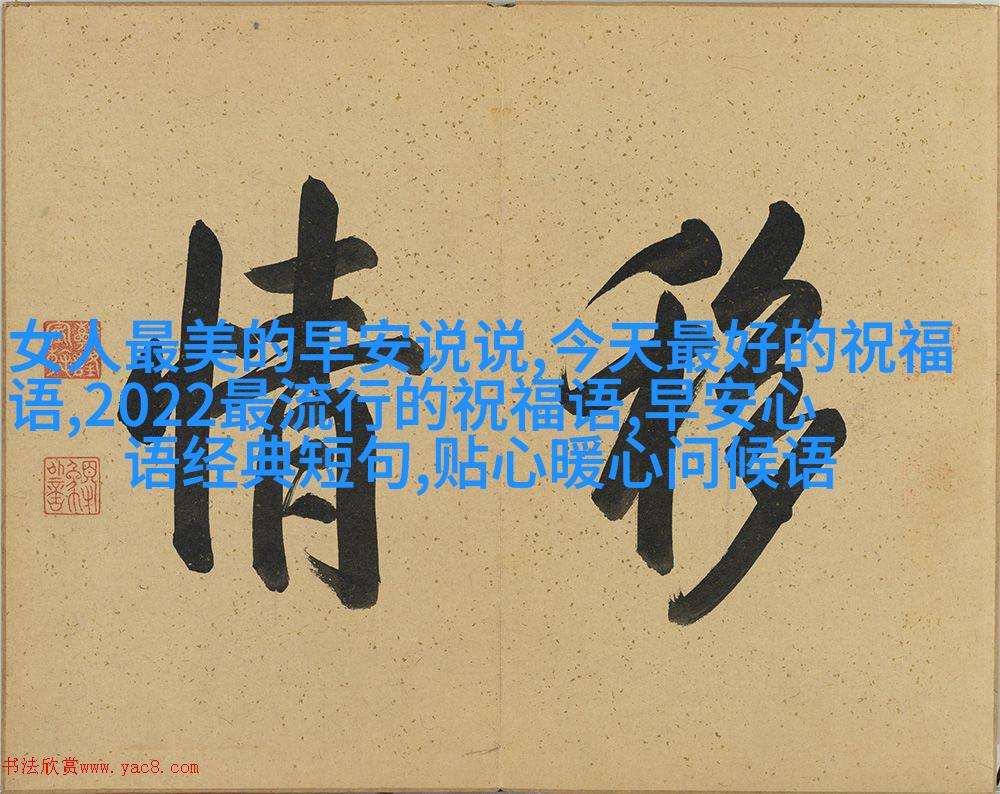 移情
女人最美的早安说说,今天最好的祝福
语,2022最流行的祝福语,早安心
语经典短句,贴心暖心问候语
书法欣赏www.yac8.com